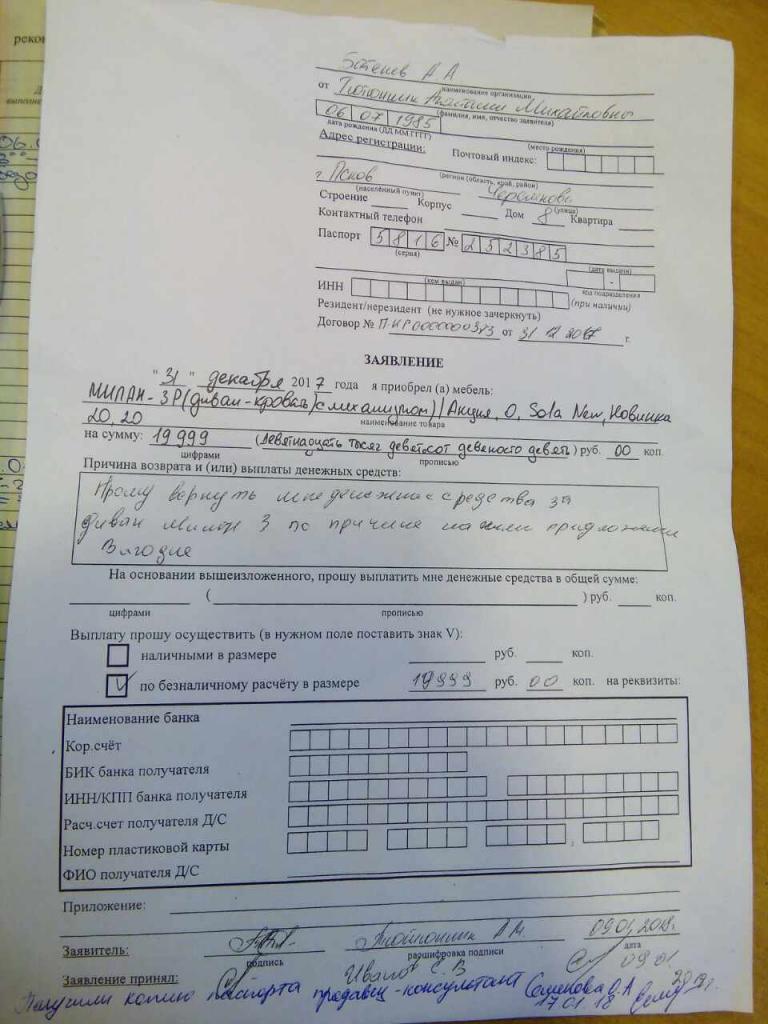 Батенев А А
наименование организации
от Тютюнник Анастасии Михайловны
(фамилия, имя, отчество заявителя)
06 07 1985
дата рождения (ДД.ММ.ГГГГ)
(место рождения)
Адрес регистрации: Почтовый индекс:
(регион (область, край, район)
г. Псков
(населённый пункт) (улица)
Строение Корпус Дом 8 Квартира
Контактный телефон
Паспорт 5816 № 252385
(серия)
(кем выдан) (дата выдачи)
код подразделения
ИНН (при наличии)
Резидент/нерезидент (не нужное зачеркнуть)
Договор № ПНР000000373 от 31 12 2017 г.
ЗАЯВЛЕНИЕ
" 31 " декабря 2017 года я приобрел (а) мебель:
МИЛАН-3Р(диван-кровать)с механизмом)|Акция, 0, Sola New, Новинка
20, 20
наименование товара
на сумму: 19 999 (девятнадцать тысяч девятьсот девяносто девять) руб. 00 коп.
цифрами прописью
Причина возврата и (или) выплаты денежных средств:
Прошу вернуть мне денежные средства за
диван Милан 3 по причине
На основании вышеизложенного, прошу выплатить мне денежные средства в общей сумме:
( ) руб. коп.
цифрами прописью
Выплату прошу осуществить (в нужном поле поставить знак V):
наличными в размере руб. коп.
V по безналичному расчёту в размере 19999 руб. 00 коп. на реквизиты:
Наименование банка
Кор.счёт
БИК банка получателя
ИНН/КПП банка получателя
Расч.счет получателя Д/С
Номер пластиковой карты
ФИО получателя Д/С
Приложение:
Заявитель: Тютюнник А М. 09.01.2018г.
подпись расшифровка подписи дата
Заявление принял: Иванов С. В 09.01.
Получили копию паспорта продавец-консультант Семенова О.А
17.01.18